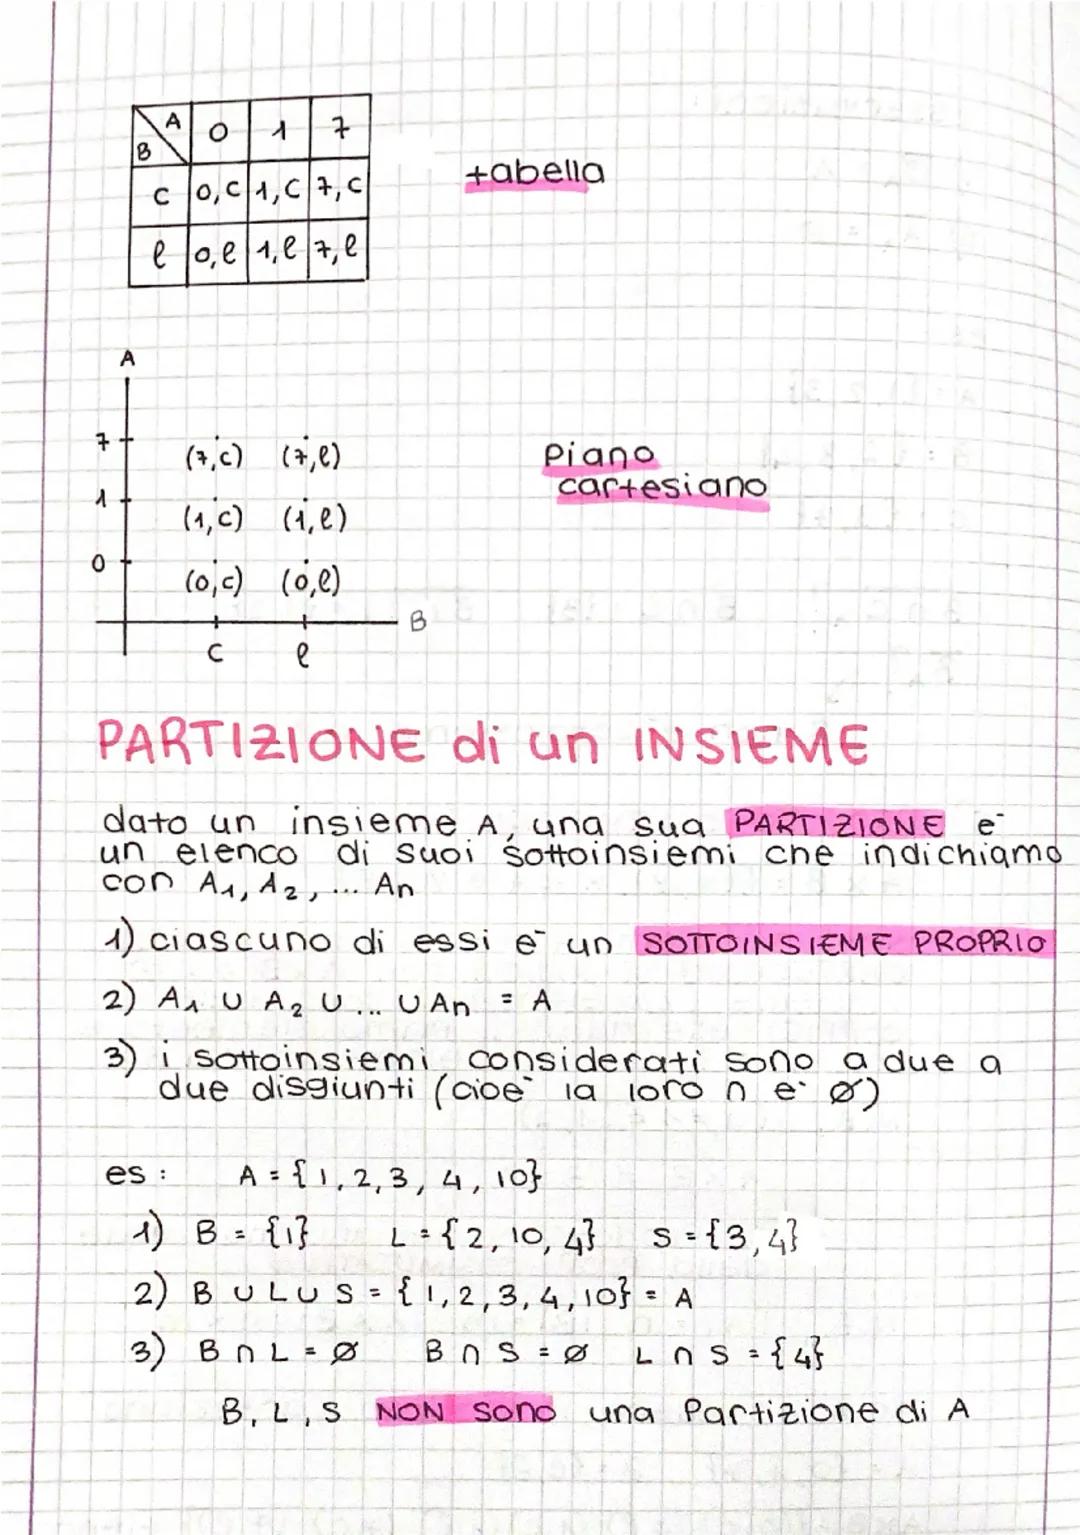 A B 0 1 7
c 0,c 1,c 7,c
e 0,e 1,e 7,e
tabella
A
7 (7,c) (7,e)
1 (1,c) (1,e)
0 (0,c) (0,e)
B
c e
Piano
cartesiano
PARTIZIONE di un INSIEME
dato un insieme A, una sua PARTIZIONE è
un elenco di suoi sottoinsiemi che indichiamo
con A₁, A₂, ... An
1) ciascuno di essi è un SOTTOINSIEME PROPRIO
2) A₁ ∪ A₂ ∪ ... ∪ An = A
3) i sottoinsiemi considerati sono a due a
due disgiunti (cioè la loro ∩ è ∅)
es: A = {1, 2, 3, 4, 10}
1) B = {1} L = {2, 10, 4} S = {3, 4}
2) B ∪ L ∪ S = {1, 2, 3, 4, 10} = A
3) B ∩ L = ∅ B ∩ S = ∅ L ∩ S = {4}
B, L, S NON sono una Partizione di A